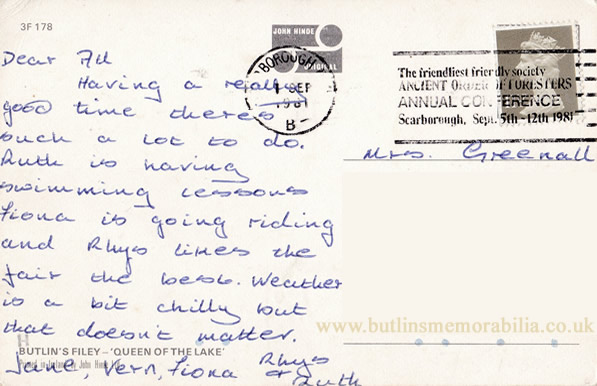 3F 178
JOHN HINDE
ORIGINAL
Dear All
Having a really
good time there's
such a lot to do.
Ruth is having
swimming lessons
Fiona is going riding
and Rhys likes the
fair the best. Weather
is a bit chilly but
that doesn't matter.
Jane, Vern, Fiona Rhys
+ Ruth
BOROUGH
1 SEP
1981
B
The friendliest friendly society
ANCIENT ORDER OF FORESTERS
ANNUAL CONFERENCE
Scarborough, Sept. 5th-12th 1981
Mrs. Greenall
www.butlinsmemorabilia.co.uk
BUTLIN'S FILEY – 'QUEEN OF THE LAKE'
Printed in Ireland by John Hinde